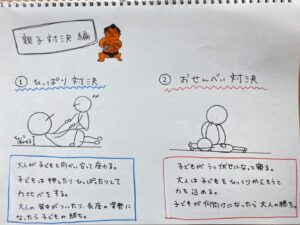 親子対決編
① ひっぱり対決
② おせんべい対決
大人が子どもと向かい合って座る。
子どもは押したりひっぱたりして
力比べをする。
大人の背中がついたり、長座の姿勢に
なったら子どもの勝ち。
子どもがうつ伏せになって寝る。
大人は子どもをひっくりかえそうと
力を込める。
子どもが仰向けになったら大人の勝ち。